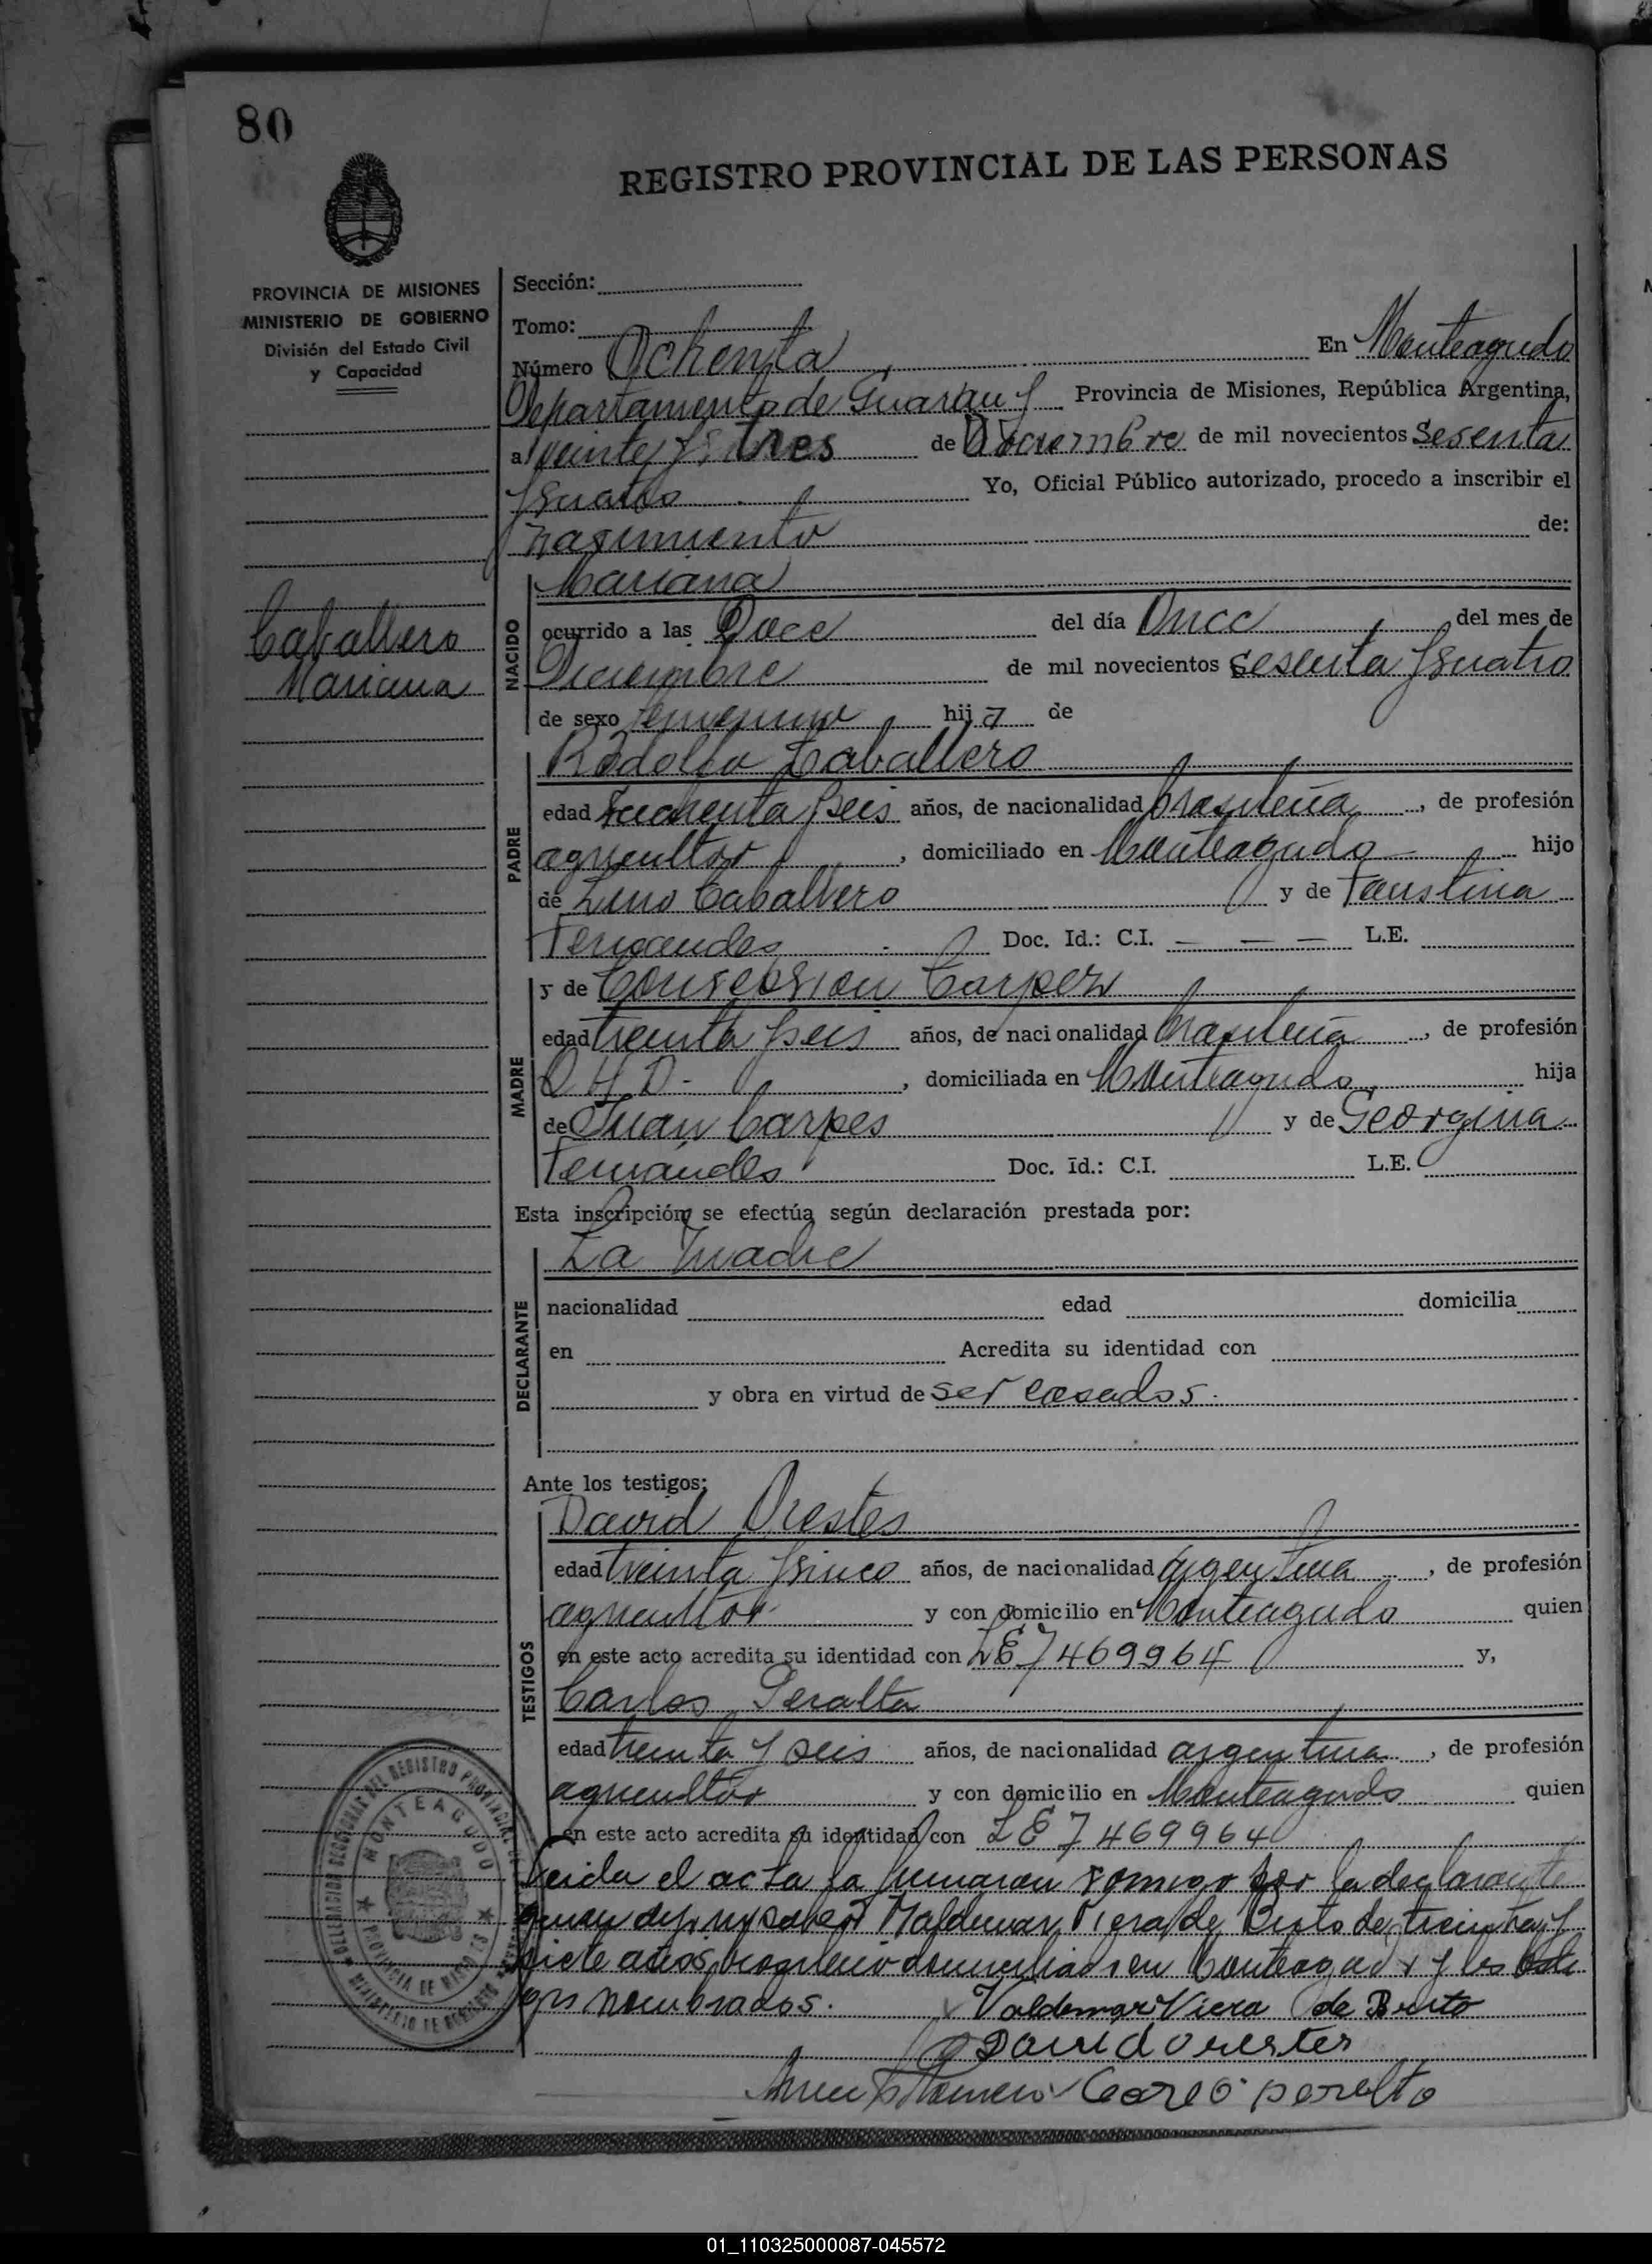 80
REGISTRO PROVINCIAL DE LAS PERSONAS
PROVINCIA DE MISIONES
MINISTERIO DE GOBIERNO
División del Estado Civil
y Capacidad
Caballero
Mariana
Sección:
Tomo:
Número Ochenta En Monteagudo
Departamento de Guaraní Provincia de Misiones, República Argentina,
a veinte y tres de Diciembre de mil novecientos sesenta
y cuatro Yo, Oficial Público autorizado, procedo a inscribir el
nacimiento de:
NACIDO
Mariana
ocurrido a las Doce del día Once del mes de
Diciembre de mil novecientos sesenta y cuatro
de sexo femenino hija de
PADRE
Rodolfo Caballero
edad cuarenta y seis años, de nacionalidad brasileña, de profesión
agricultor, domiciliado en Monteagudo hijo
de Lino Caballero y de Faustina
Fernandes Doc. Id.: C.I. — — — L.E.
MADRE
y de Concepcion Carpes
edad treinta y seis años, de nacionalidad brasileña, de profesión
Q.H.D.-, domiciliada en Monteagudo, hija
de Juan Carpes y de Georgina
Fernandes Doc. Id.: C.I. L.E.
Esta inscripción se efectúa según declaración prestada por:
DECLARANTE
La madre
nacionalidad edad domicilia
en Acredita su identidad con
y obra en virtud de ser casados.
Ante los testigos:
TESTIGOS
David Orestes
edad treinta y cinco años, de nacionalidad argentina, de profesión
agricultor y con domicilio en Monteagudo quien
en este acto acredita su identidad con LE 7469964 y,
Carlos Peralta
edad treinta y seis años, de nacionalidad argentina, de profesión
agricultor y con domicilio en Monteagudo quien
en este acto acredita su identidad con LE 7469964
Leida el acta la firmaran conmigo por la declarante
quien dijo no saber Valdemar Viera de Brito de treinta y
siete años, brasileño domiciliado en Monteagudo y los testi
gos nombrados. Valdemar Viera de Brito
David orestes
Carlo peralto
DELEGACION SECCIONAL DEL REGISTRO PROVINCIAL
MONTEAGUDO
PROVINCIA DE MISIONES
MINISTERIO DE GOBIERNO
01_110325000087-045572